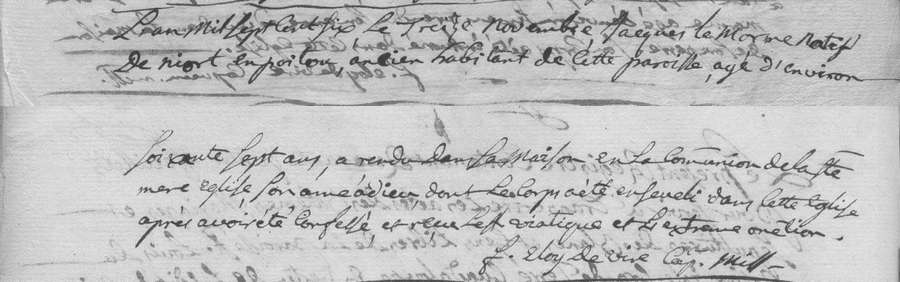 L'ean Mil sept Cent six Le Treize novembre Jacques le Morne Natif
De niort en poitou, ancien habitant de Cette paroisse, agé d'environ
soixante sept ans, a rendu dans sa Maison en La Communion de la Ste
mere Eglise, son ame a dieu dont Le Corps a eté enseveli dans Cette Eglise
après avoir eté Confessé, et receu Le St viatique et L'extreme onction.
f. eloy De vire Cap. Miss